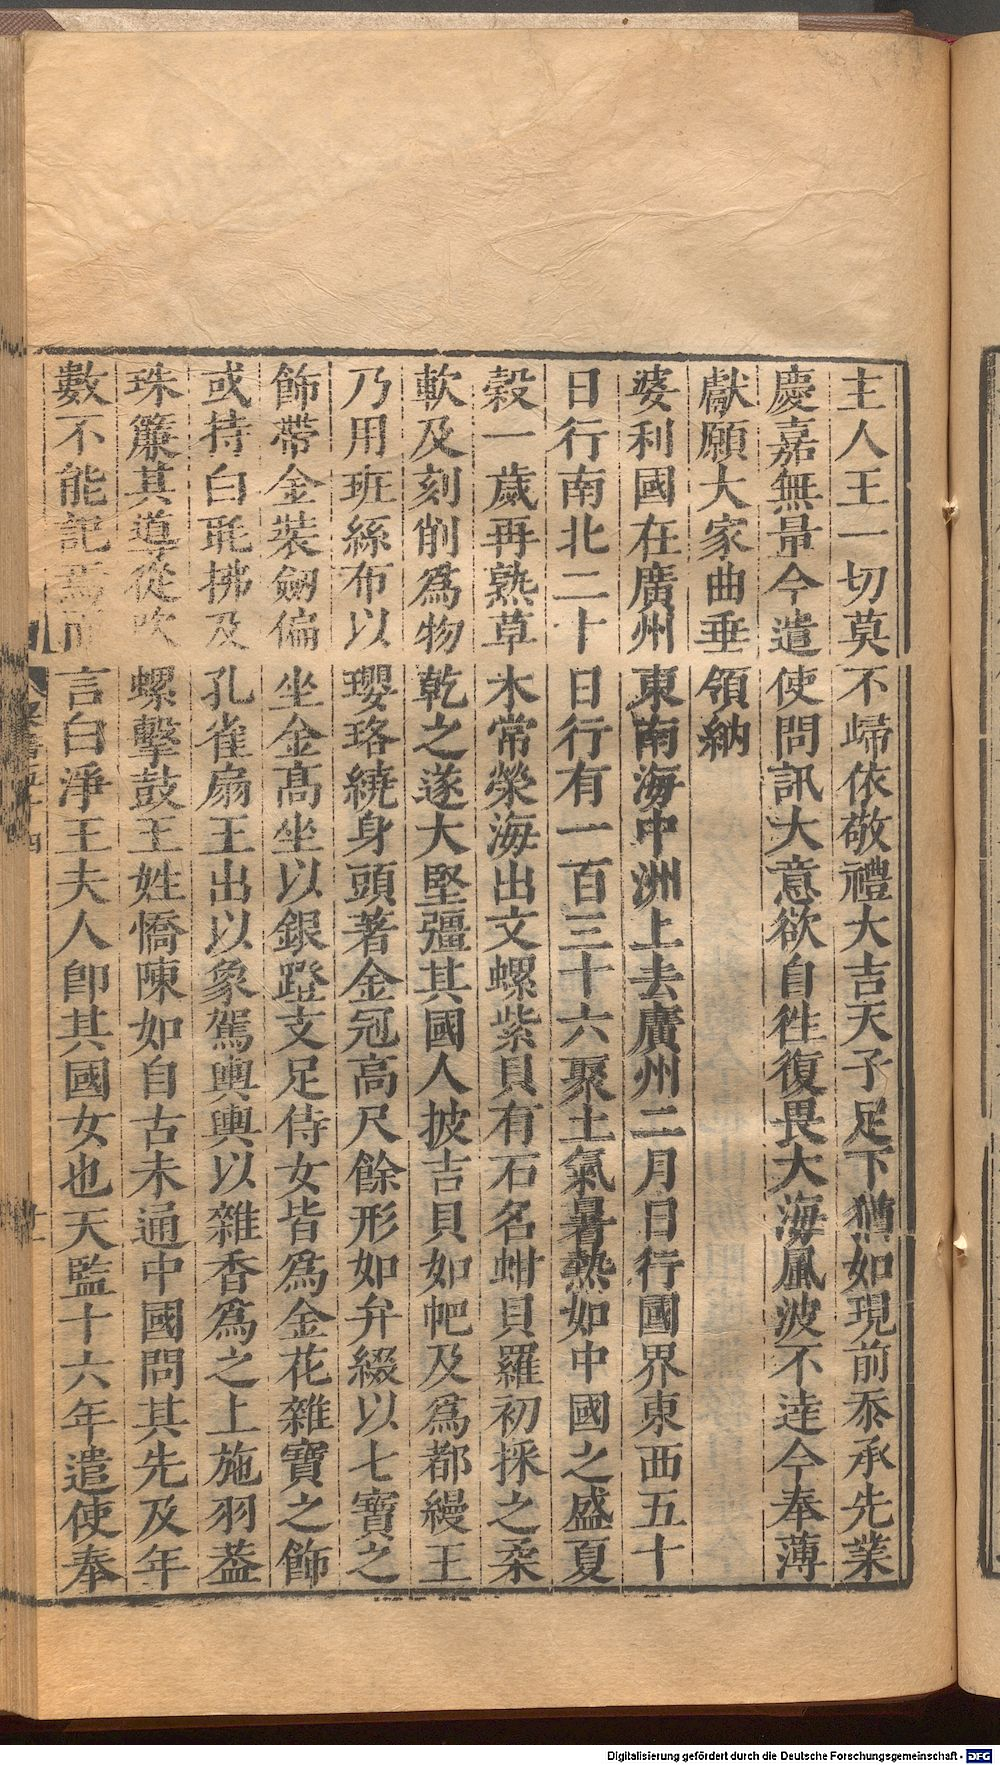 主人王一切莫不歸依敬禮大吉天子足下猶如現前忝承先業
慶嘉無量今遣使問訊大意欲自徃復畏大海風波不達今奉薄
獻願大家曲垂領納
婆利國在廣州東南海中洲上去廣州二月日行國界東西五十
日行南北二十日行有一百三十六聚土氣暑熱如中國之盛夏
穀一歲再熟草木常榮海出文螺紫貝有石名蚶貝羅初採之柔
軟及刻削爲物乾之遂大堅彊其國人披吉貝如帊及爲都縵王
乃用班絲布以瓔珞繞身頭著金冠高尺餘形如弁綴以七寶之
飾帶金裝劒偏坐金高坐以銀蹬支足侍女皆爲金花雜寶之飾
或持白毦拂及孔雀扇王出以象駕輿輿以雜香爲之上施羽葢
珠簾其導從吹螺擊鼓王姓憍陳如自古未通中國問其先及年
數不能記焉而言白淨王夫人卽其國女也天監十六年遣使奉
Digitalisierung gefördert durch die Deutsche Forschungsgemeinschaft - DFG